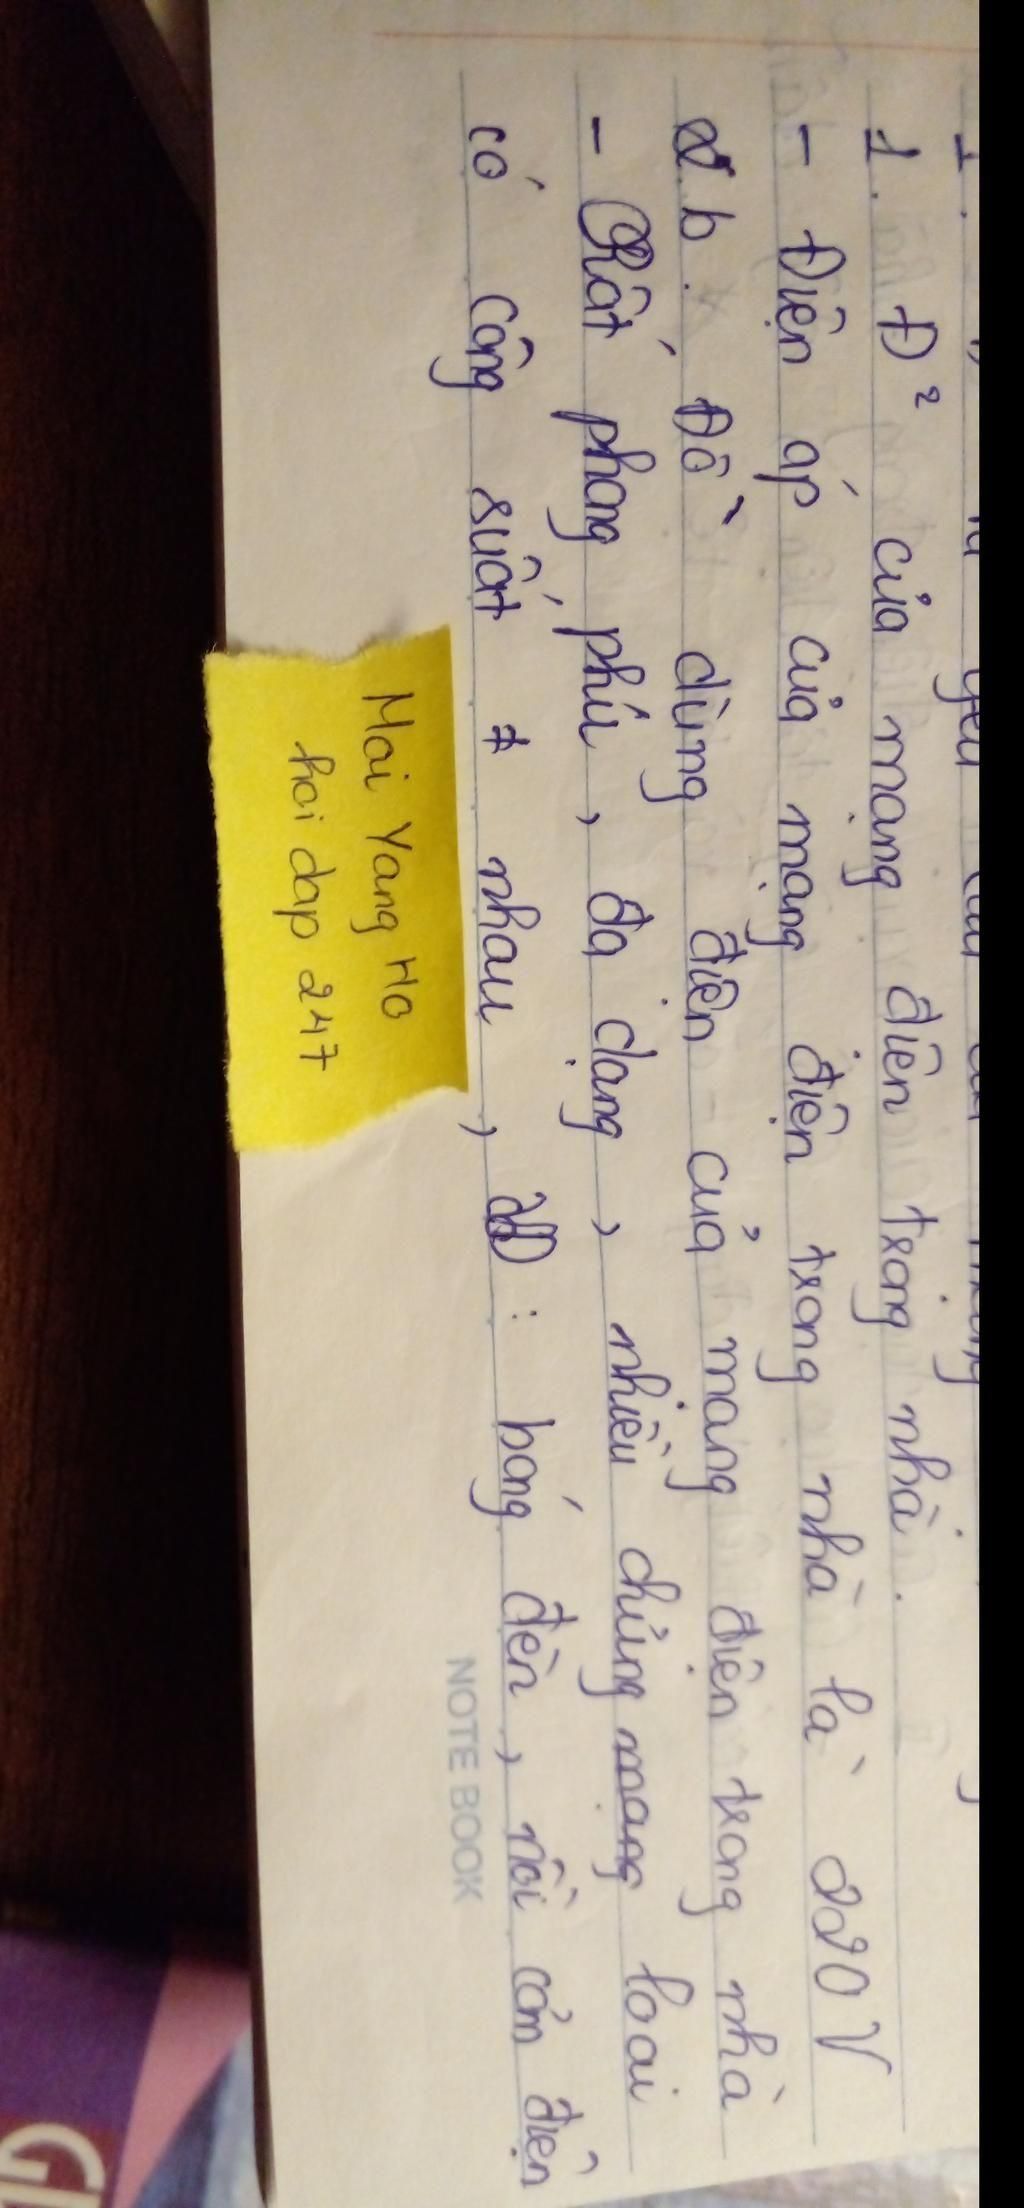 1. Đ² của mạng điện trong nhà.
- Điện áp của mạng điện trong nhà là 220 V
b. Đồ dùng điện của mạng điện trong nhà
- Rất phong phú, đa dạng, nhiều chủng mạng loại
có công suất ≠ nhau, : bóng đèn, nồi cơm điện
Mai Vang Ho
hoi dap 247
NOTE BOOK
GU